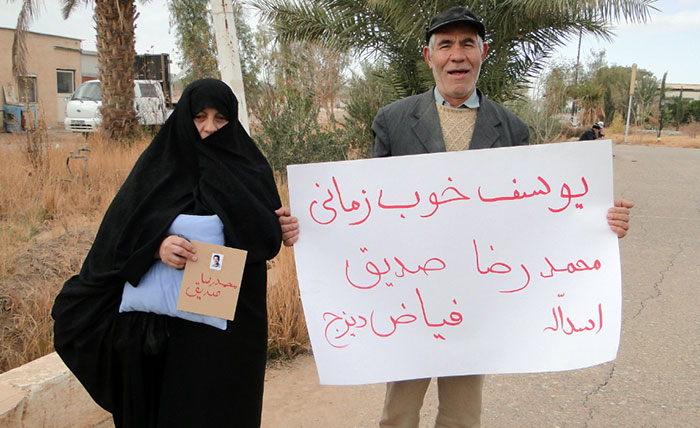 یوسف خوب زمانی
محمدرضا صدیق
اسداله فیاض دیزج
محمدرضا
صدیق